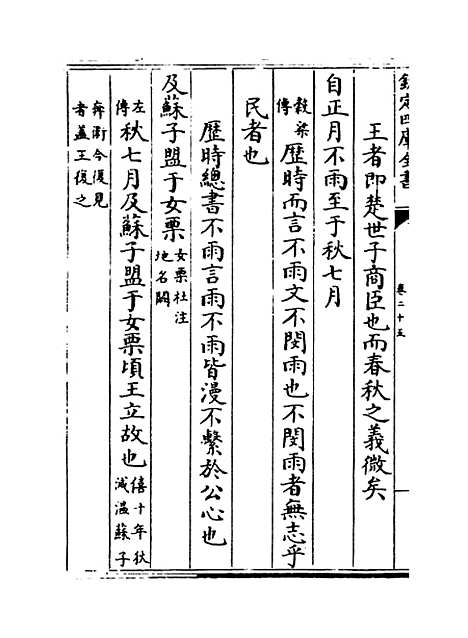 欽定四庫全書
卷二十五
王者即楚世子商臣也而春秋之義微矣
自正月不雨至于秋七月
穀梁傳歷時而言不雨文不閔雨也不閔雨者無志乎
民者也
歷時總書不雨言雨不雨皆漫不繫於公心也
及蘇子盟于女栗女栗杜注地名闕
左傳秋七月及蘇子盟于女栗頃王立故也僖十年狄滅溫蘇子
奔衛今復見者蓋王復之